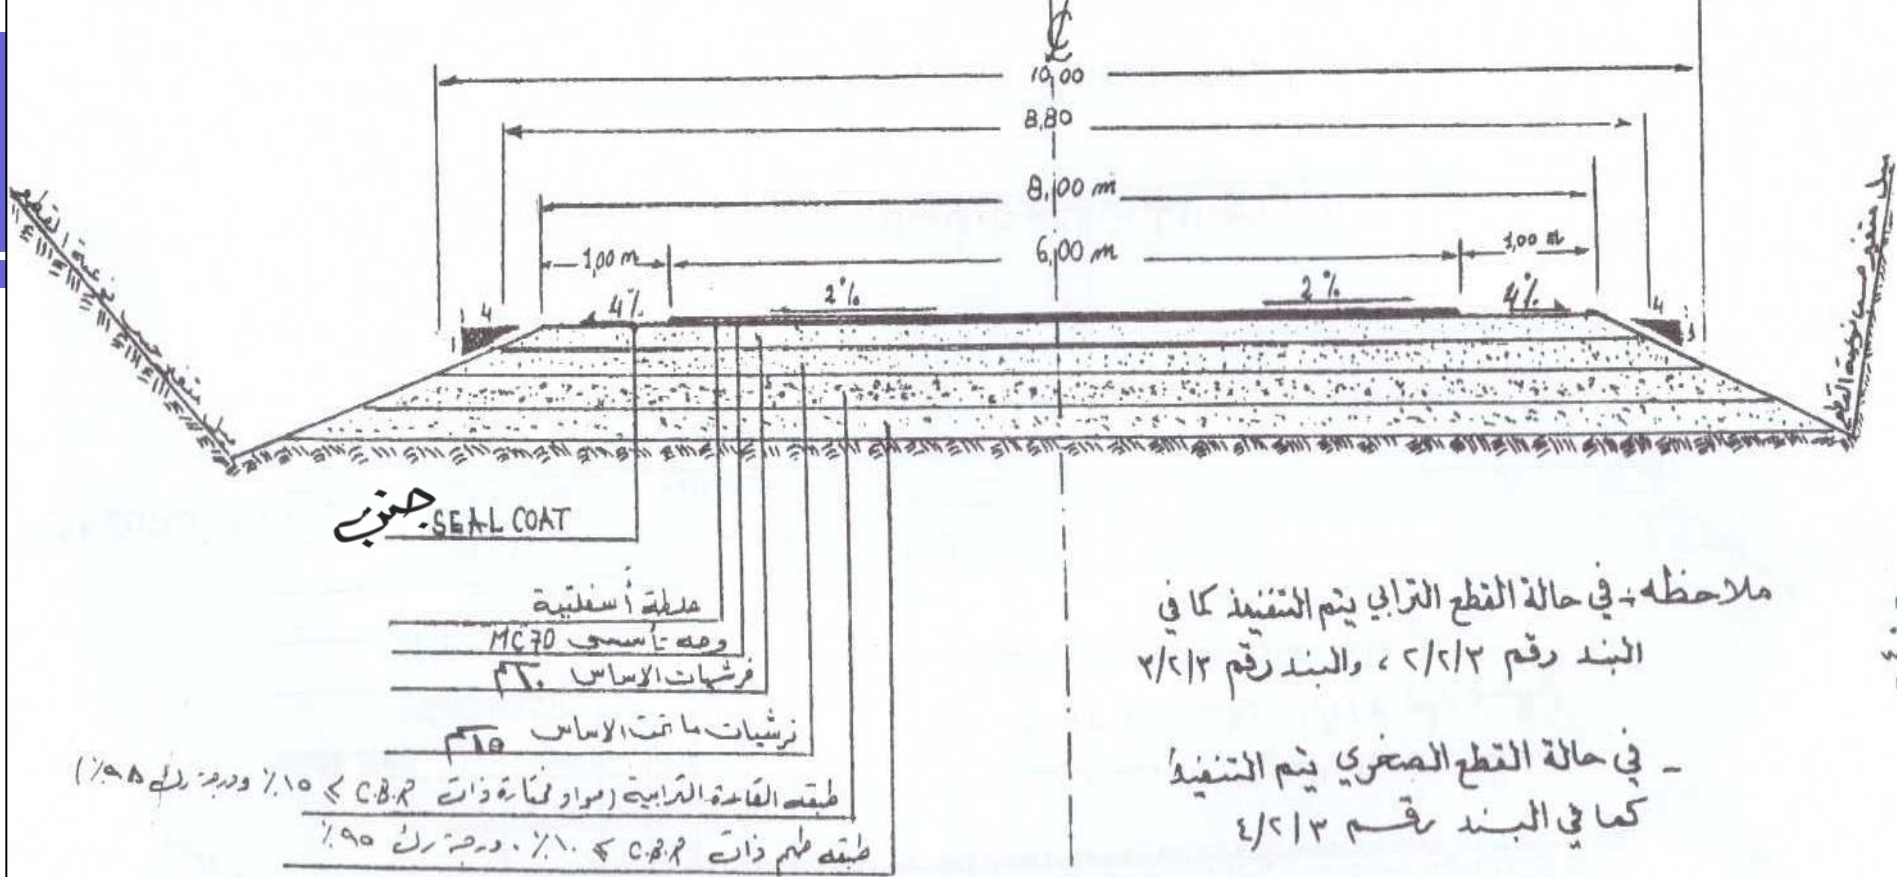 ℄
10,00
8,80
8,00 m
1,00 m
6,00 m
1,00 m
4
4%
2%
2%
4%
4
1
1
جنب SEAL COAT
خلطة أسفلتية
وجه تأسيسي MC70
فرشيات الاساس
فرشيات ما تحت الاساس ١٥سم
طبقة القاعدة الترابية (مواد مختارة ذات C.B.R ≥ ١٥٪ ودرجة رك ٩٨٪)
طبقة طمم ذات C.B.R ≥ ١٠٪ ودرجة رك ٩٥٪
ملاحظه :- في حالة القطع الترابي يتم التنفيذ كما في
البند رقم ٢/٢/٣ ، والبند رقم ٣/٢/٣
- في حالة القطع الصخري يتم التنفيذ
كما في البند رقم ٤/٢/٣